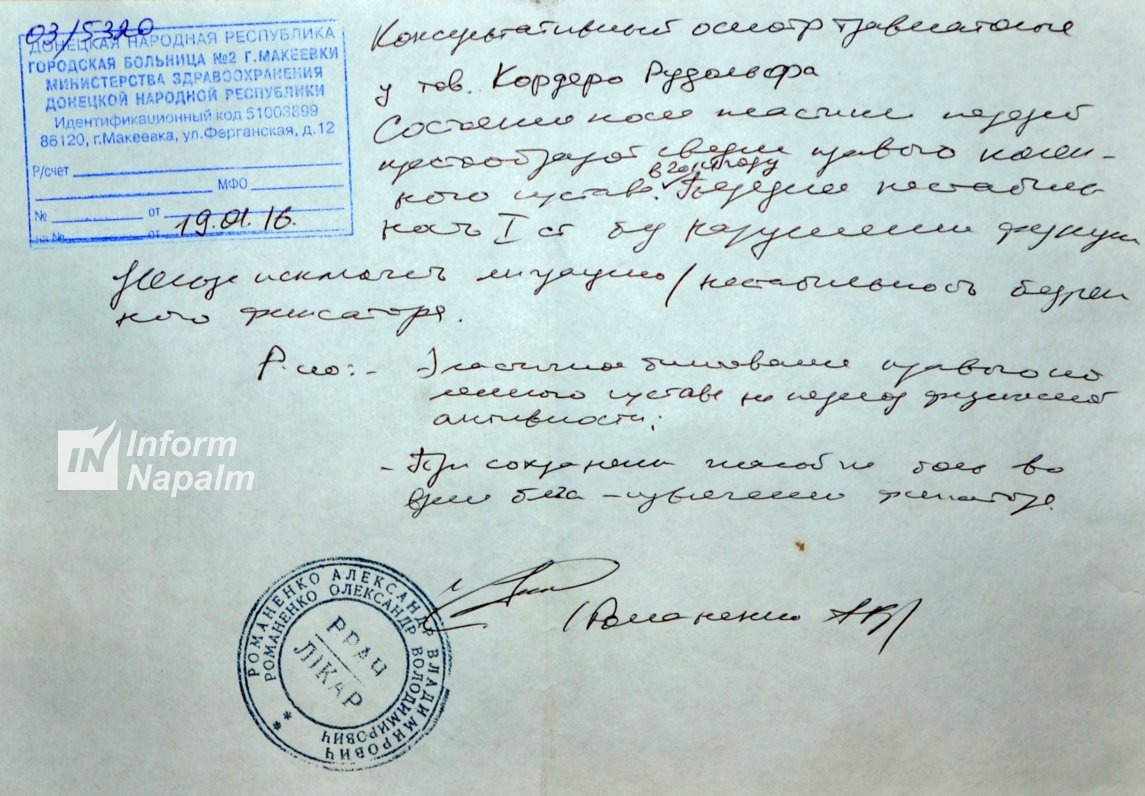 03/5320
ДОНЕЦКАЯ НАРОДНАЯ РЕСПУБЛИКА
ГОРОДСКАЯ БОЛЬНИЦА №2 Г.МАКЕЕВКИ
МИНИСТЕРСТВА ЗДРАВООХРАНЕНИЯ
ДОНЕЦКОЙ НАРОДНОЙ РЕСПУБЛИКИ
Идентификационный код 51003899
86120, г.Макеевка, ул.Ферганская, д.12
Р/счет
МФО
№ от 19.01.16.
на № от
Консультативный осмотр травматолога
у тов. Кордеро Рудольфа
Состояние после пластики передней
крестообразной связки правого колен-
ного сустава. Передняя нестабиль
ность I ст без нарушения функции
Нельзя исключить миграцию/нестабильность бедрен
ного фиксатора.
Р-но:- Эластичное бинтование правого ко
ленного сустава на период физической
активности;
- При сохранении жалоб на боль во
время бега - удаление фиксатора.
Inform
Napalm
РОМАНЕНКО АЛЕКСАНДР ВЛАДИМИРОВИЧ
РОМАНЕНКО ОЛЕКСАНДР ВОЛОДИМИРОВИЧ
ВРАЧ
ЛІКАР
/Романенко АВ/